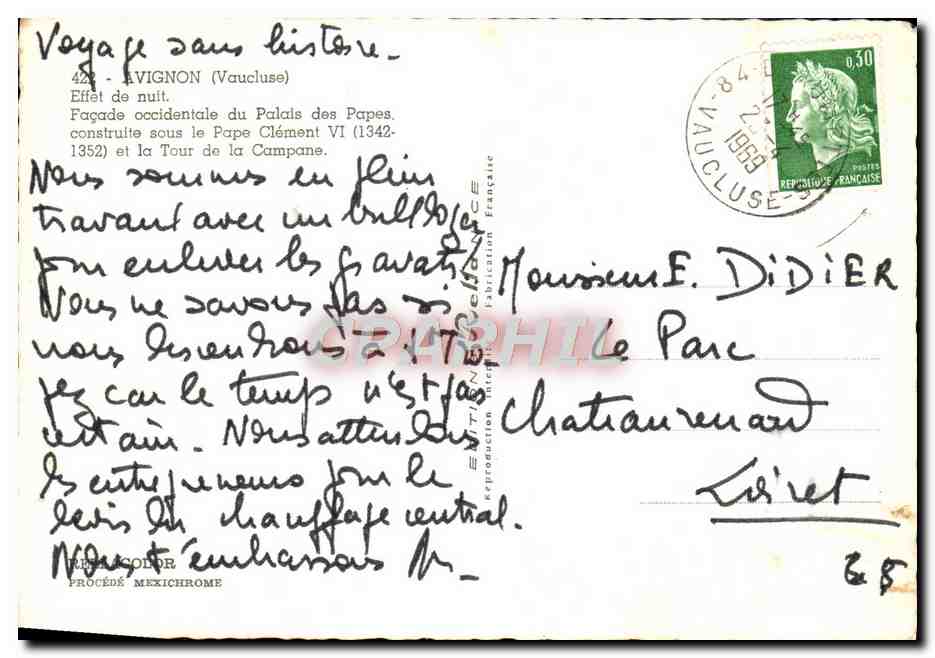 Voyage sans histoire_
422 - AVIGNON (Vaucluse)
Effet de nuit.
Façade occidentale du Palais des Papes,
construite sous le Pape Clément VI (1342-
1352) et la Tour de la Campane.
Nous sommes en plein
travaut avec un bulldozer
pour enlever les gravats.
Nous ne savons pas si
nous descendrons à St Tro
pez car le temps n'est pas
certain. Nous attendons
les entrepreneurs pour le
devis du chauffage central.
Nous t'embrassons
PROCÉDÉ MEXICHROME
EDITIONS RELLANCE
Reproduction Interdite Fabrication Française
CPARPHIL
84
VAUCLUSE
1969
0,30
POSTES
REPUBLIQUE FRANÇAISE
Monsieur E. DiDiER
Le Parc
Chateaurenard
Loiret